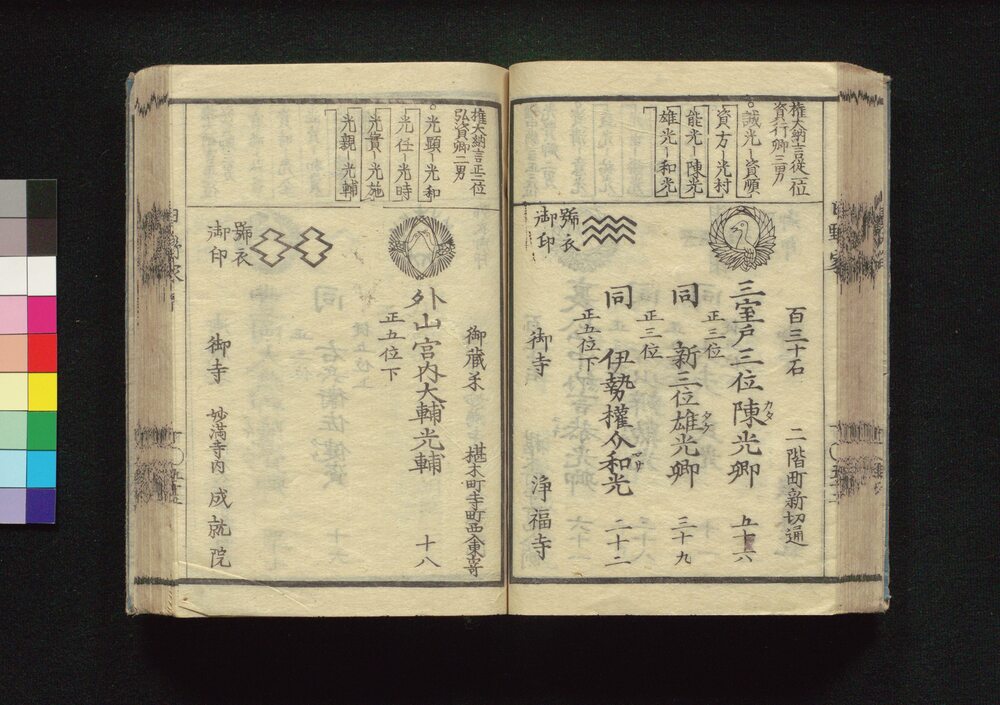 権大納言従一位
資行卿三男
誠光ー資順
資方ー光村
能光ー陳光
雄光ー和光
百三十石　二階町新切通
三室戸三位陳光卿　五十六
カタ
正三位
同　新三位雄光卿　三十九
タケ
正三位
同　伊勢權介和光　二十二
マサ
正五位下
御寺　浄福寺
號衣
御印
権大納言正二位
弘資卿二男
光顕ー光和
光任ー光時
光實ー光施
光親ー光輔
御蔵米　椹木町寺町西入東寄
外山宮内大輔光輔　十八
正五位下
號衣
御印
御寺　妙満寺内　成就院